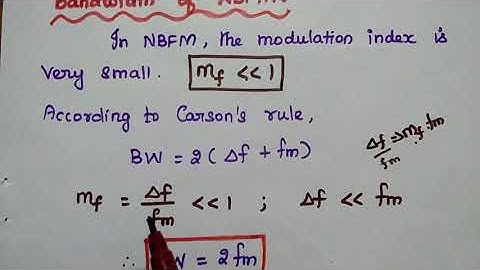 Bandwidth of NBFM:
In NBFM, the modulation index is
very small. mf << 1
According to Carson's rule,
BW = 2(Δf + fm)
Δf/fm = mf . fm
mf = Δf/fm << 1 ; Δf << fm
∴ BW = 2fm